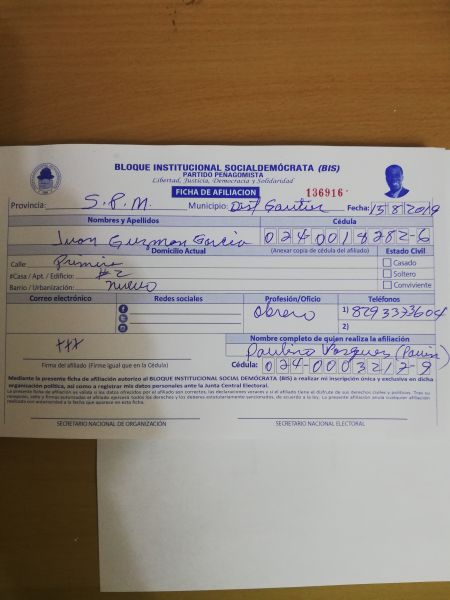 BLOQUE INSTITUCIONAL SOCIALDEMÓCRATA (BIS)
PARTIDO PENAGOMISTA
Libertad, Justicia, Democracia y Solidaridad
FICHA DE AFILIACION 136916
Provincia: S.P.M. Municipio: Dist Gautier Fecha: 15/8/2019
Nombres y Apellidos Cédula
Juan Guzman Garcia 024-0018282-6
Domicilio Actual (Anexar copia de cédula del afiliado) Estado Civil
Calle: Primera Casado
#Casa / Apt. / Edificio: #2 Soltero
Barrio / Urbanización: nuevo Conviviente
Correo electrónico Redes sociales Profesión/Oficio Teléfonos
obrero 1) 8293373604
2)
+++ Nombre completo de quien realiza la afiliación
Paulino Vasquez
Firma del afiliado (Firme igual que en la Cédula) Cédula: 024-0003217-9
Mediante la presente ficha de afiliación autorizo al BLOQUE INSTITUCIONAL SOCIAL DEMÓCRATA (BIS) a realizar mi inscripción única y exclusiva en dicha
organización política, así como a registrar mis datos personales ante la Junta Central Electoral.
SECRETARIO NACIONAL DE ORGANIZACIÓN SECRETARIO NACIONAL ELECTORAL